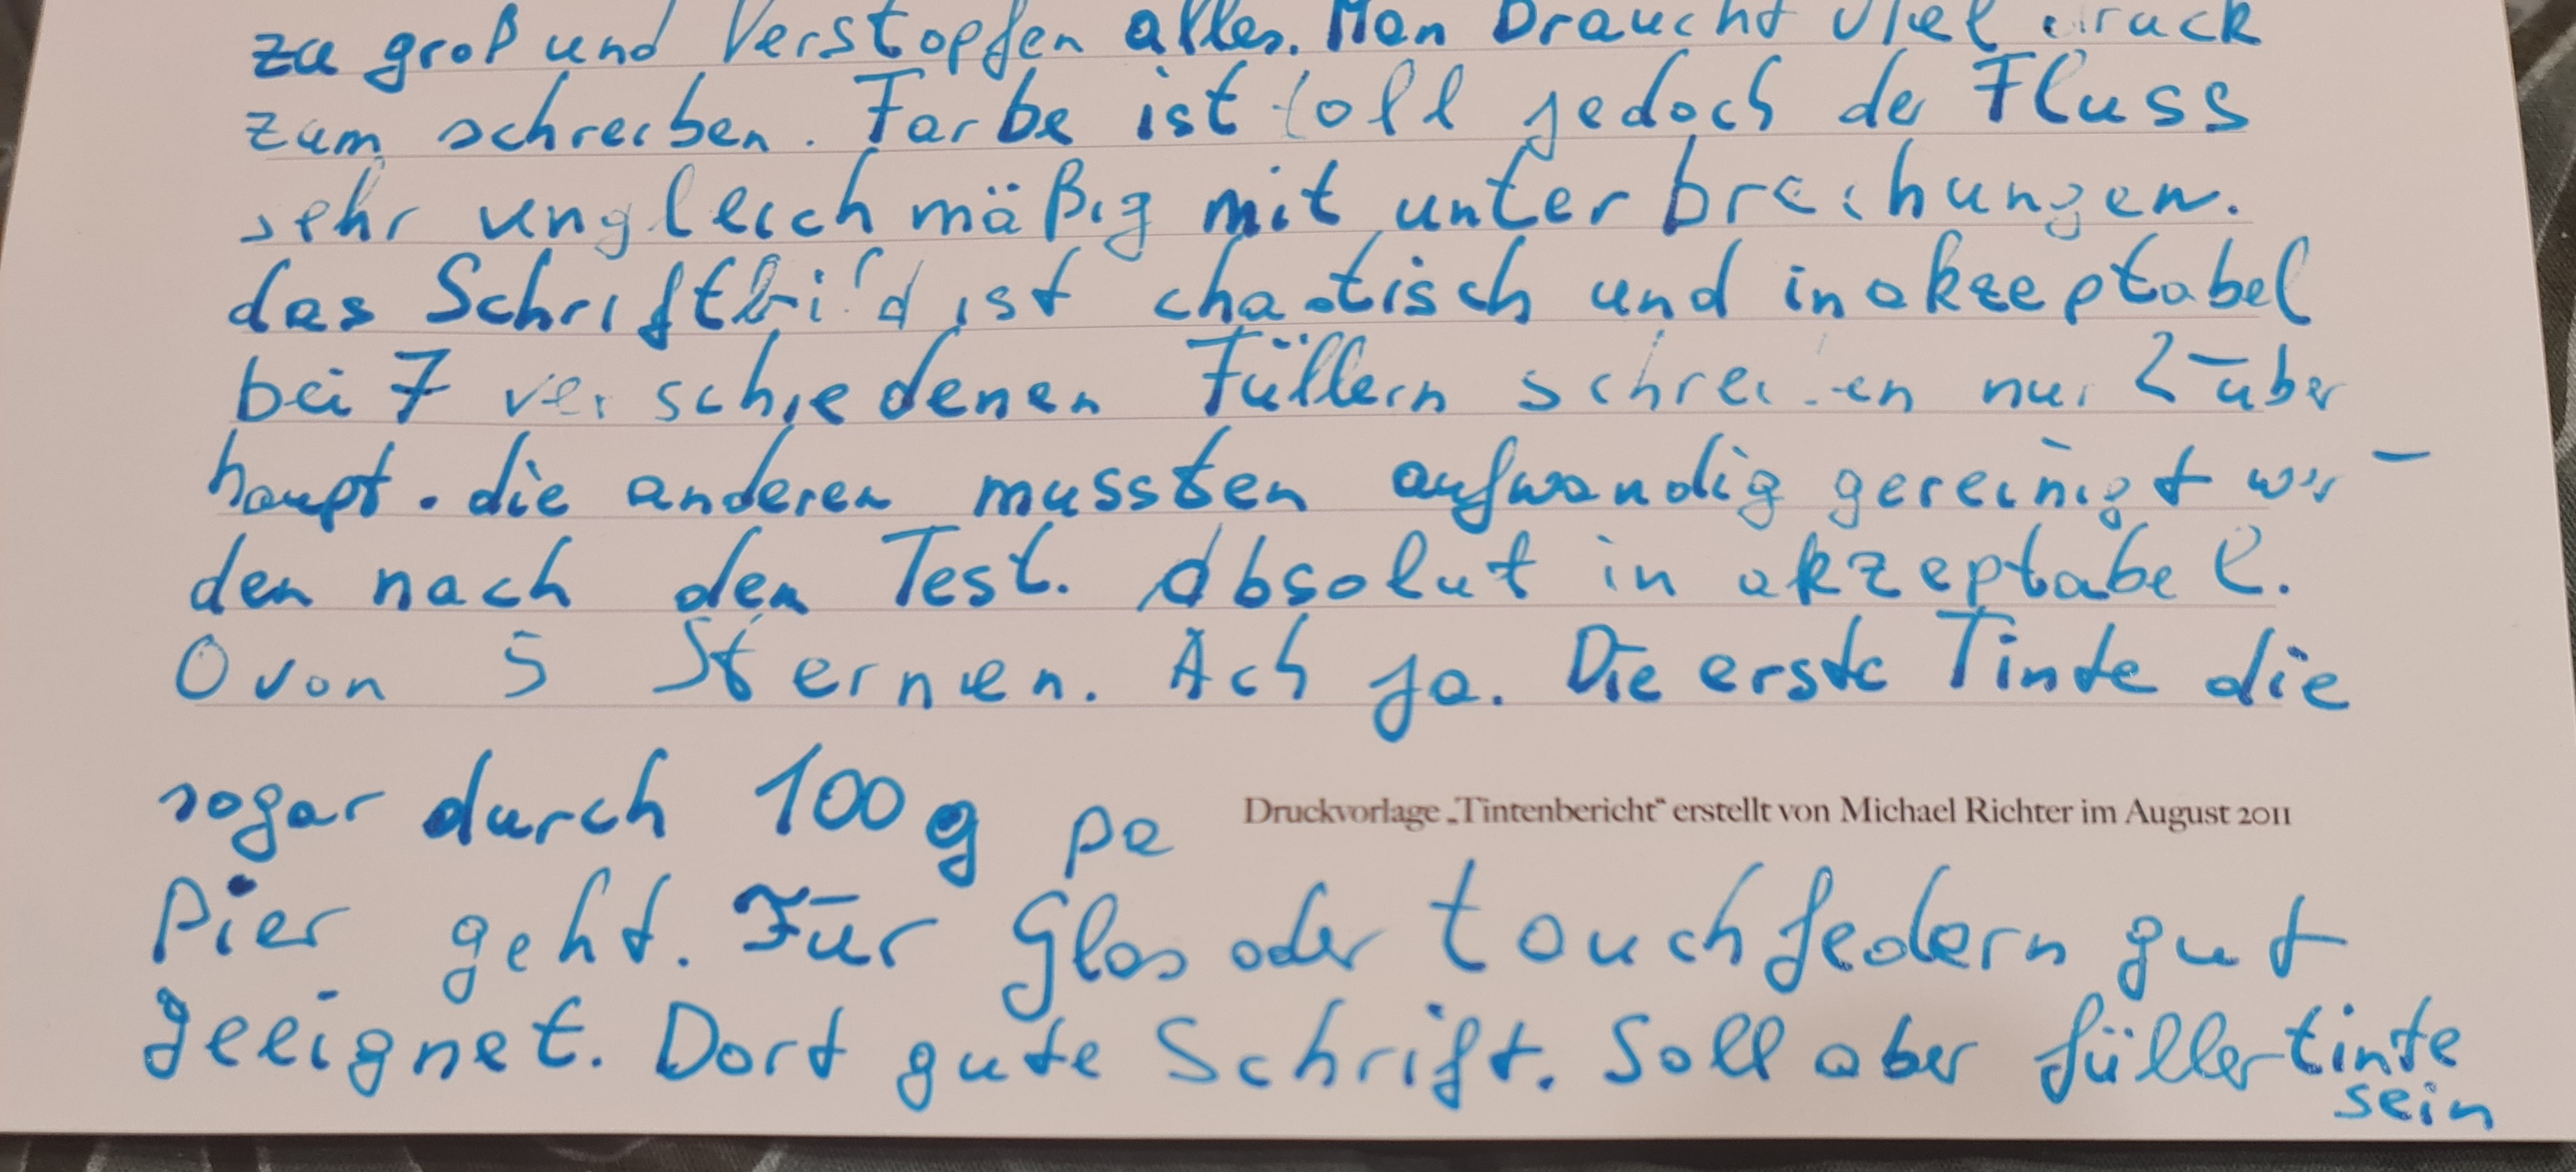 zu groß und Verstopfen alles. Man braucht viel druck
zum schreiben. Farbe ist toll jedoch der Fluss
sehr ungleichmäßig mit unterbrechungen.
das Schriftbild ist chaotisch und inakzeptabel
bei 7 verschiedenen Füllern schreiben nur 2 über
haupt. die anderen mussten aufwandig gereinigt wer-
den nach dem Test. Absolut inakzeptabel.
0 von 5 Sternen. Ach ja. Die erste Tinte die
sogar durch 100g pa
Druckvorlage „Tintenbericht“ erstellt von Michael Richter im August 2011
Pier geht. Für Glas oder touchfedern gut
geeignet. Dort gute Schrift. Soll aber füllertinte
sein